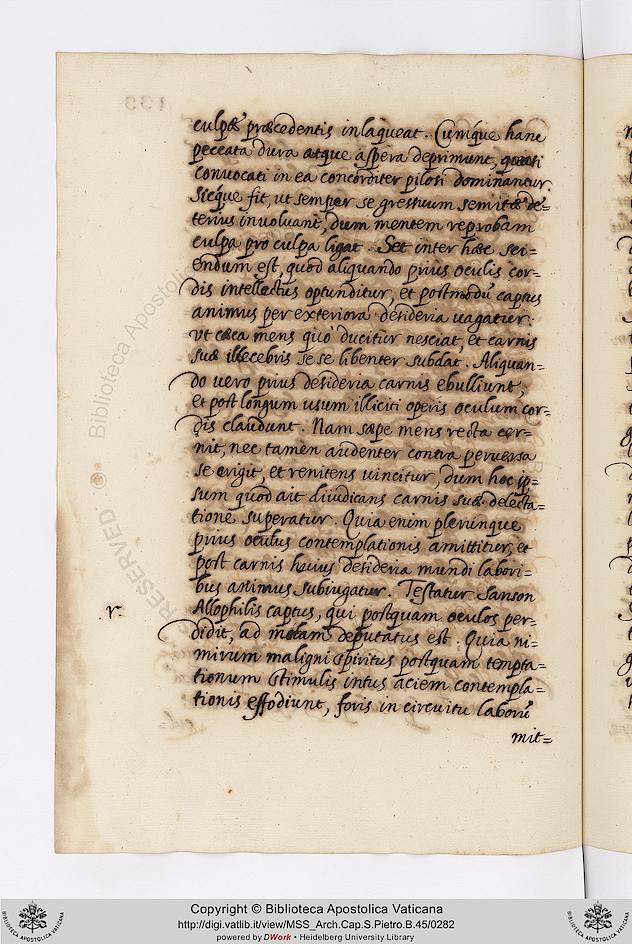 culpæ præcedentis inlaqueat. Cumque hanc
peccata dura atque aspera deprimunt, quasi
convocati in ea concorditer pilosi dominantur.
Sicque fit, ut semper se gressuum semitæ de=
terius involuant, dum mentem reprobam
culpa pro culpa ligat. Set inter hæc sci=
endum est, quod aliquando prius oculis cor=
dis intellectus optunditur, et postmodũ captus
animus per exteriora desideria uagatur.
ut cæca mens quo ducitur nesciat, et carnis
suæ illecebris se se libenter subdat. Aliquan=
do uero prius desideria carnis ebulliunt,
et post longum usum illiciti operis oculum cor=
dis claudunt. Nam sæpe mens recta cer=
nit, nec tamen audenter contra peruersa
se erigit, et renitens uincitur, dum hoc ip=
sum quod ait diiudicans carnis suæ delecta=
tione superatur. Quia enim plerunque
prius oculus contemplationis amittitur, et
post carnis huius desideria mundi labori=
bus animus subiugatur. Testatur Sanson
Allophilis captus, qui postquam oculos per=
didit, ad molam deputatus est. Quia ni=
mirum maligni spiritus postquam tempta=
tionum stimulis intus aciem contempla=
tionis effodiunt, foris in circuitu laborũ
mit=
r.
133
Biblioteca Apostolica
RESERVED
Copyright © Biblioteca Apostolica Vaticana
http://digi.vatlib.it/view/MSS_Arch.Cap.S.Pietro.B.45/0282
powered by DWork • Heidelberg University Library